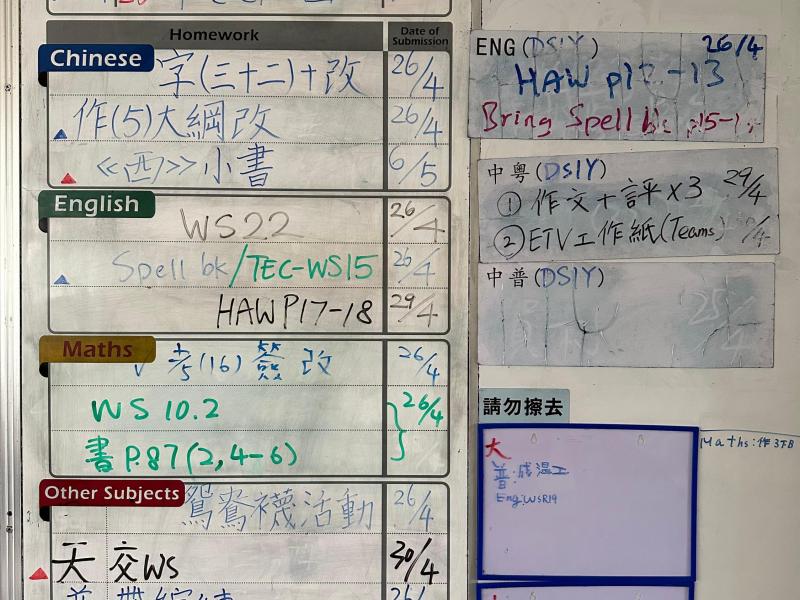 Homework
Date of Submission
Chinese
字(三十二)+改 26/4
作(5)大綱改 26/4
《西》小書 6/5
English
WS22 26/4
Spell bk/TEC-WS15 26/4
HAW P17-18 29/4
Maths
(16) 簽 改 26/4
WS 10.2 26/4
書 P.87(2,4-6)
Other Subjects
鴛鴦襪活動 26/4
天 交WS 30/4
26/
ENG (DS1Y) 26/4
HAW p12-13
Bring Spell bk p15-1
中粵(DS1Y)
① 作文+評x3 29/4
② ETV工作紙(Teams) /4
中普(DS1Y)
25/4
請勿擦去
大
普:成温工
Eng:WSR19
Maths:作3下B